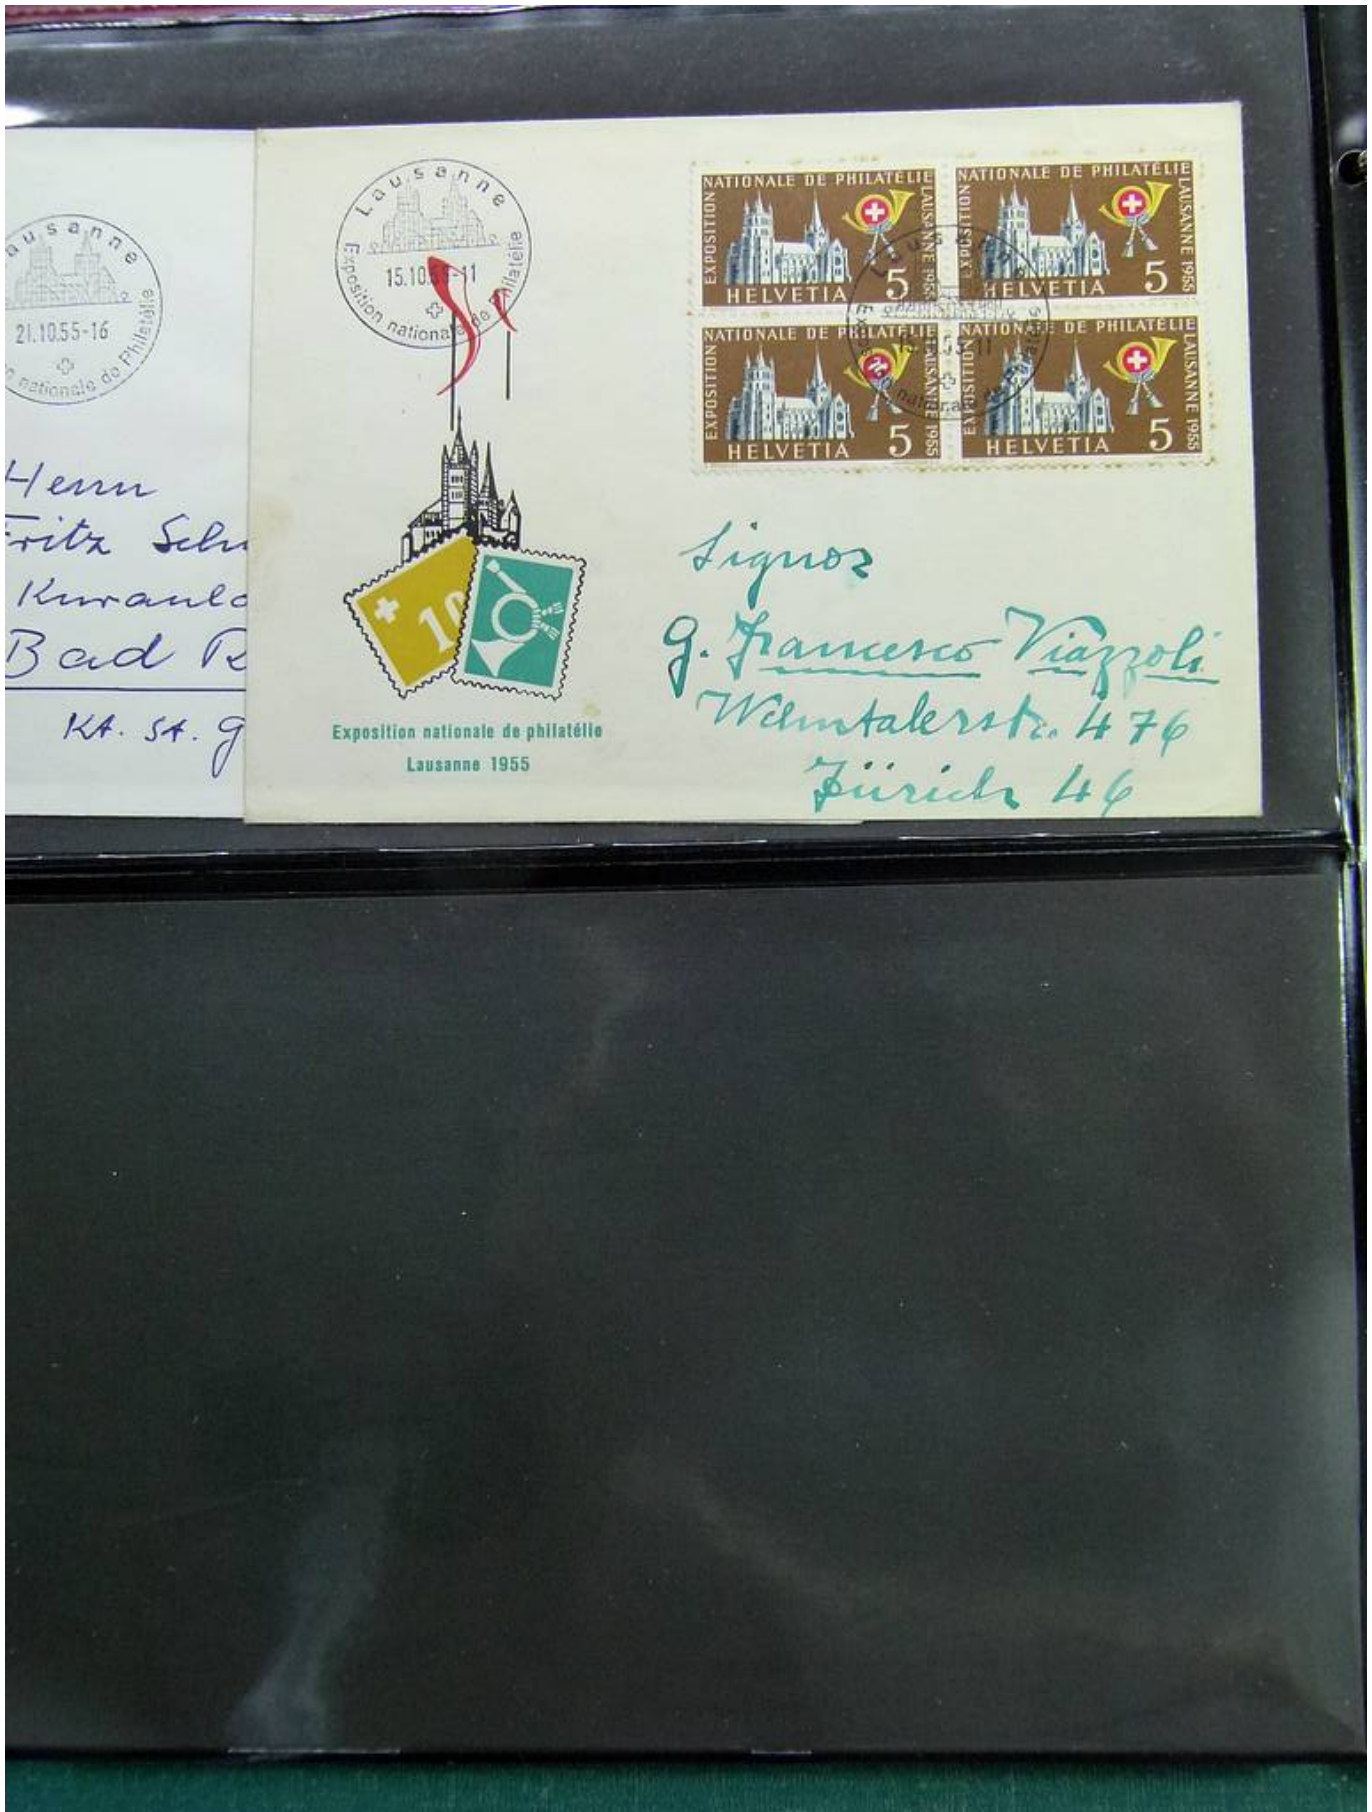 Lausanne
21.10.55-16
nationale de Philatélie
Herrn
Fritz
Bad
Kt. St. G
Lausanne
15.10.55-11
Exposition nationale de Philatélie
10
Exposition nationale de philatélie
Lausanne 1955
EXPOSITION NATIONALE DE PHILATÉLIE LAUSANNE 1955
5
HELVETIA
EXPOSITION NATIONALE DE PHILATÉLIE LAUSANNE 1955
5
HELVETIA
EXPOSITION NATIONALE DE PHILATÉLIE LAUSANNE 1955
5
HELVETIA
EXPOSITION NATIONALE DE PHILATÉLIE LAUSANNE 1955
5
HELVETIA
Lausanne
15.10.55-11
Exposition nationale de Philatélie
Signor
G. Francesco Viazzoli
Wehntalerstr. 476
Zürich 46